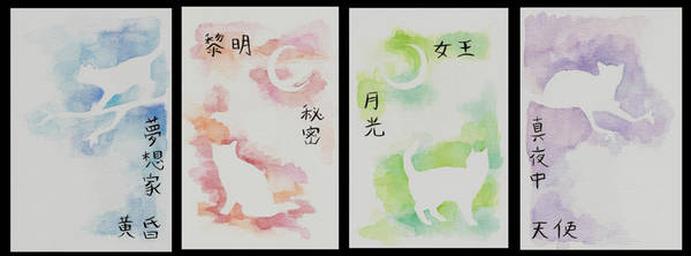 夢想家
黄昏
黎明
秘密
女王
月光
真夜中
天使